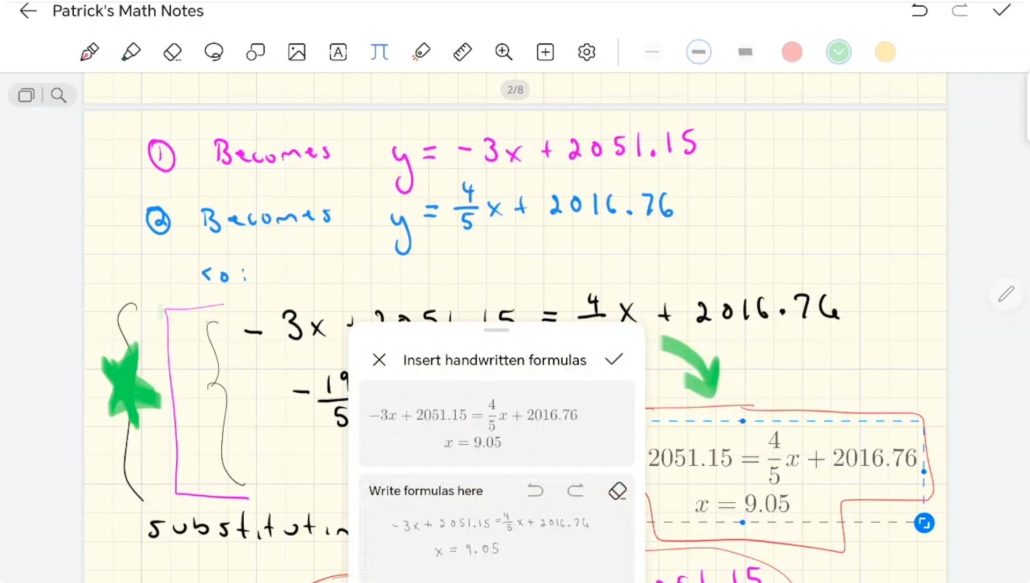 Patrick's Math Notes
2/8
① Becomes y = -3x + 2051.15
② Becomes y = 4/5 x + 2016.76
so:
-3x + 2051.15 = 4/5 x + 2016.76
Insert handwritten formulas
-19/5
−3x + 2051.15 = 4/5 x + 2016.76
x = 9.05
2051.15 = 4/5 x + 2016.76
x = 9.05
Write formulas here
-3x + 2051.15 = 4/5 x + 2016.76
x = 9.05
substitutin
51.15